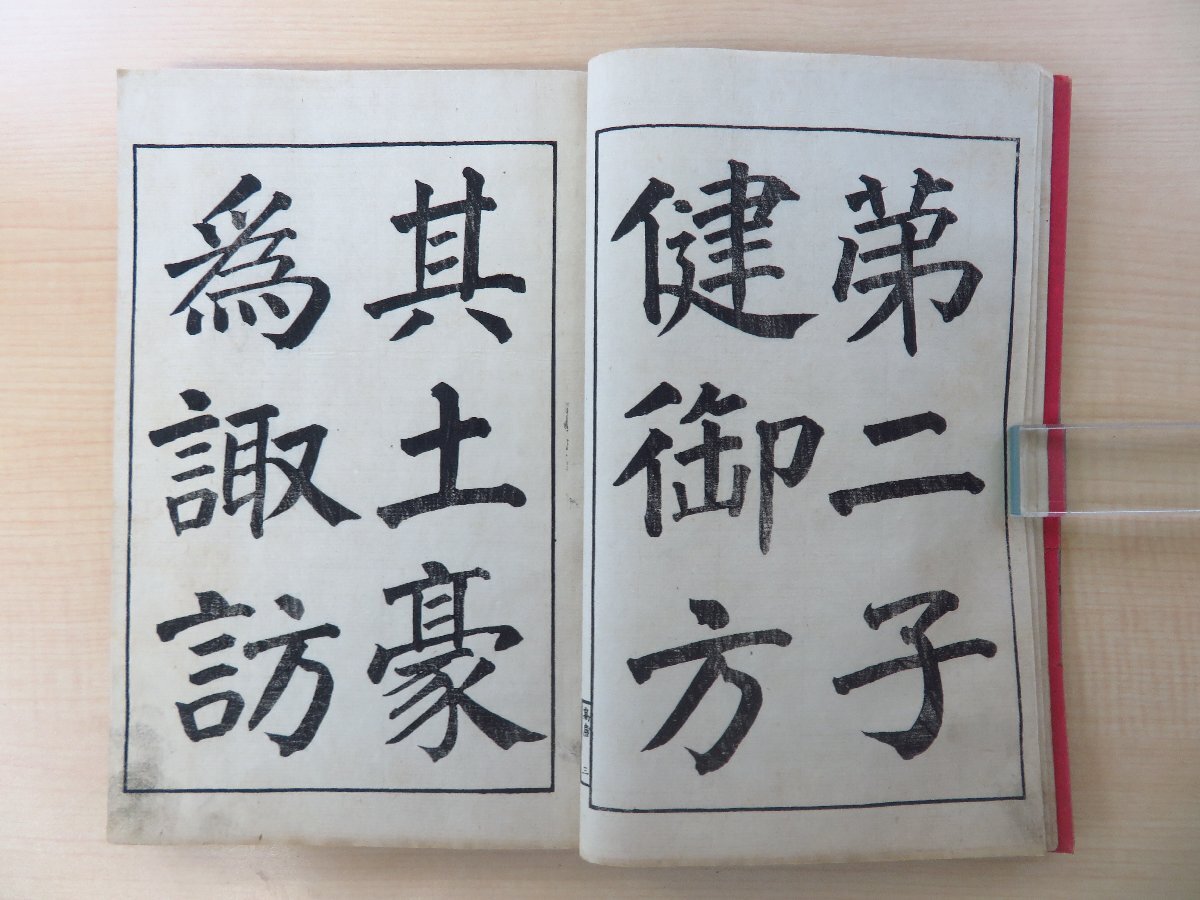 第二子
健御方
其土豪
爲諏訪
三